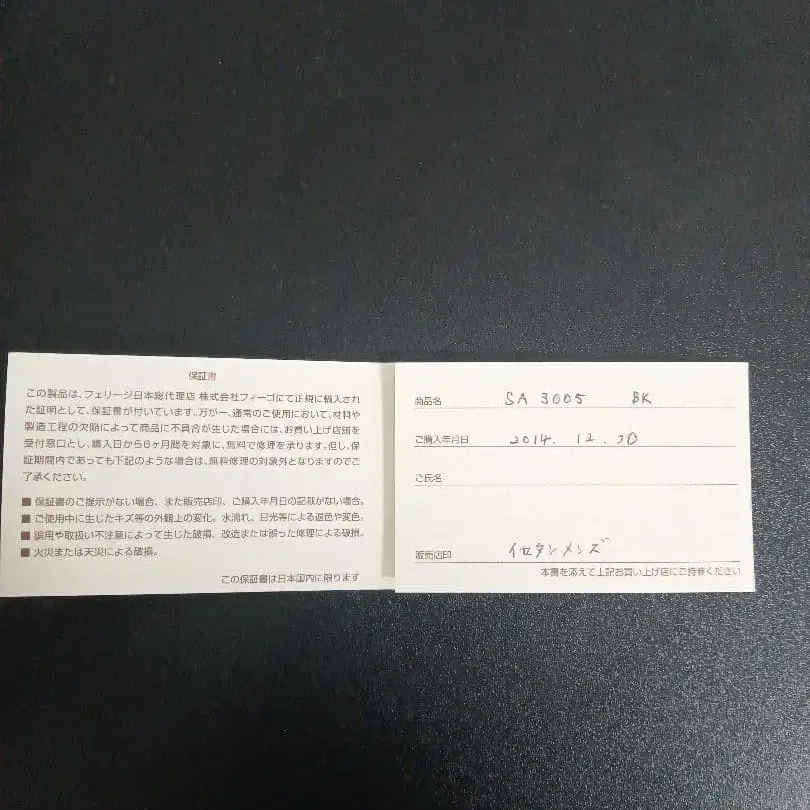 保証書
この製品は、フェリージ日本総代理店 株式会社フィーゴにて正規に輸入され
た証明として、保証書が付いています。万が一、通常のご使用において、材料や
製造工程の欠陥によって商品に不具合が生じた場合には、お買い上げ店舗を
受付窓口とし、購入日から6ヶ月間を対象に、無料で修理を承ります。但し、保
証期間内であっても下記のような場合は、無料修理の対象外となりますのでご
了承ください。
■ 保証書のご提示がない場合、また販売店印、ご購入年月日の記載がない場合。
■ ご使用中に生じたキズ等の外観上の変化。水濡れ、日光等による退色や変色。
■ 誤用や取扱い不注意によって生じた破損、改造または誤った修理による破損。
■ 火災または天災による破損。
この保証書は日本国内に限ります
商品名 SA 3005 BK
ご購入年月日 2014. 12. 30
ご氏名
販売店印 イセタンメンズ
本書を添えて上記お買い上げ店にご持参ください